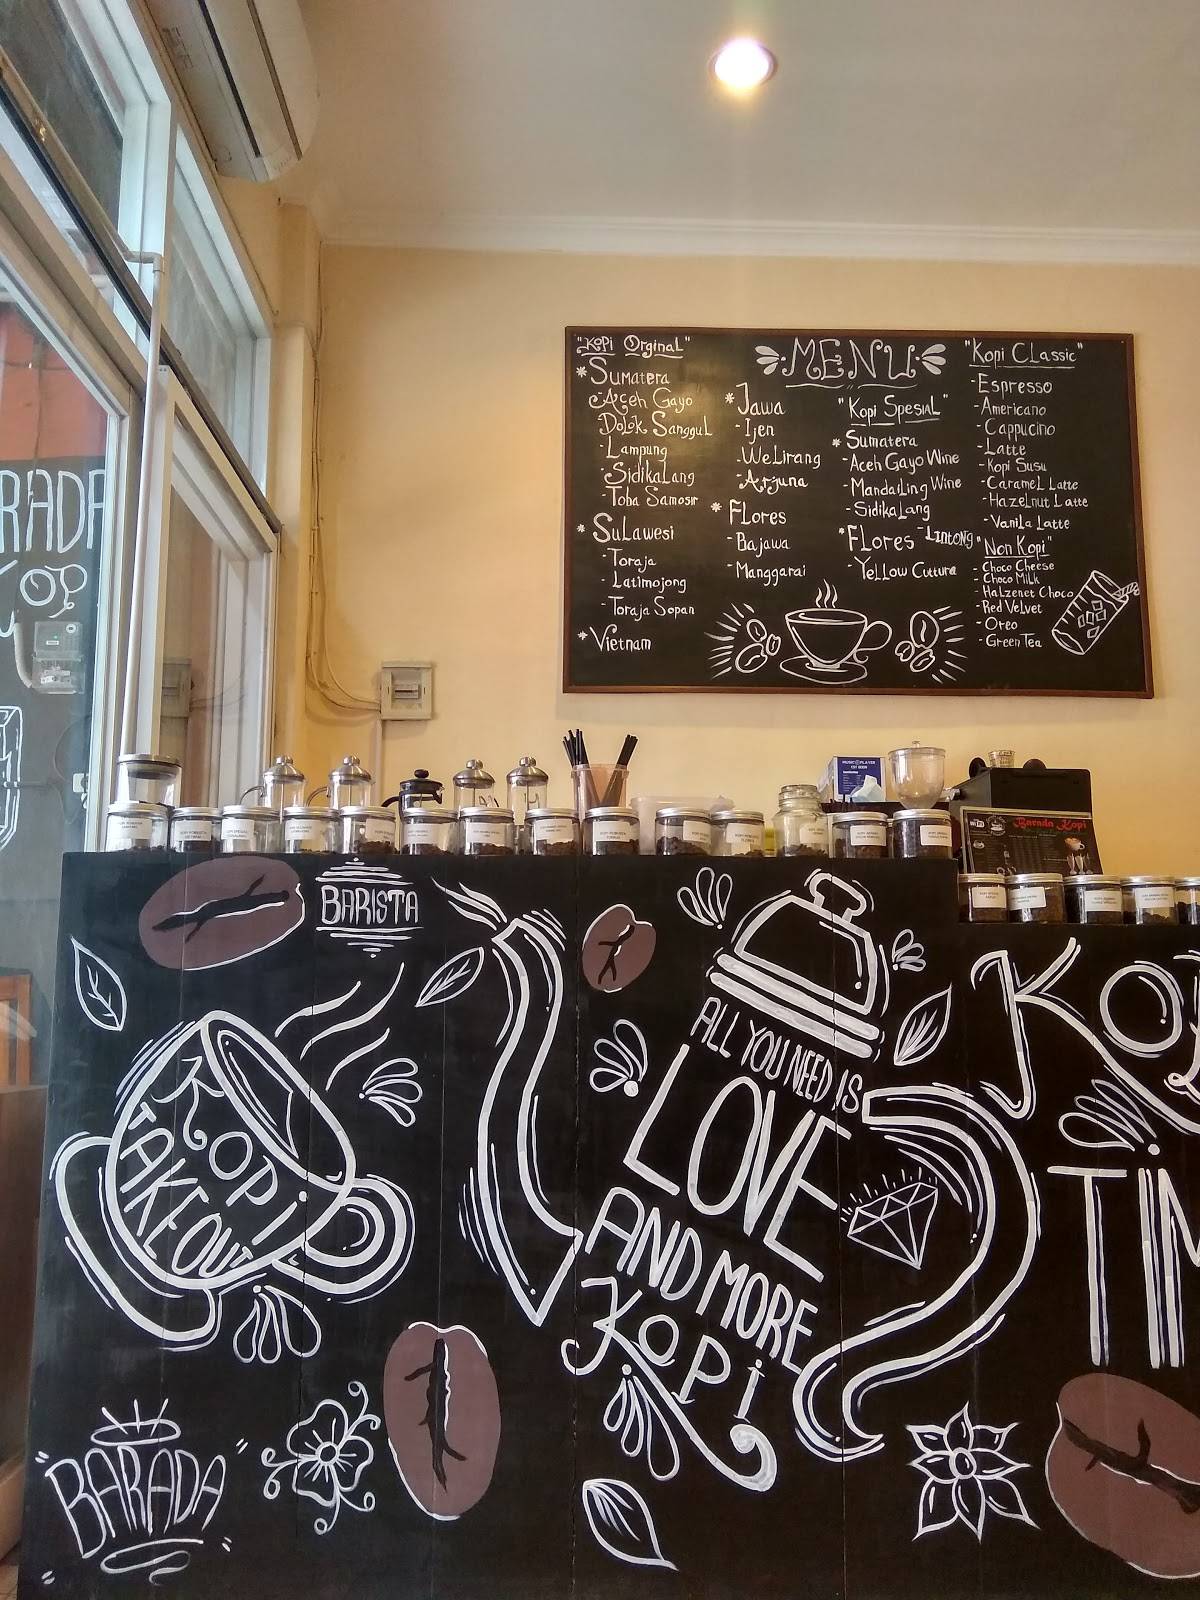 "Kopi Orginal"
* Sumatera
- Aceh Gayo
Dolok Sanggul
- Lampung
- Sidikalang
- Toba Samosir
* Sulawesi
- Toraja
- Latimojong
- Toraja Sopan
* Vietnam
MENU
* Jawa
- Ijen
- Welirang
- Arjuna
* Flores
- Bajawa
- Manggarai
"Kopi Spesial"
* Sumatera
- Aceh Gayo Wine
- Mandailing Wine
- Sidikalang
- Lintong
* Flores
- Yellow Cuttura
"Kopi Classic"
- Espresso
- Americano
- Cappucino
- Latte
- Kopi Susu
- Caramel Latte
- Hazelnut Latte
- Vanila Latte
"Non Kopi"
- Choco Cheese
- Choco Milk
- Halzenet Choco
- Red Velvet
- Oreo
- Green Tea
RADA
MUSIC PLAYER
Barada Kopi
BARISTA
KOPI
TAKEOUT
"BARADA"
ALL YOU NEED IS
LOVE
AND MORE
KOPI